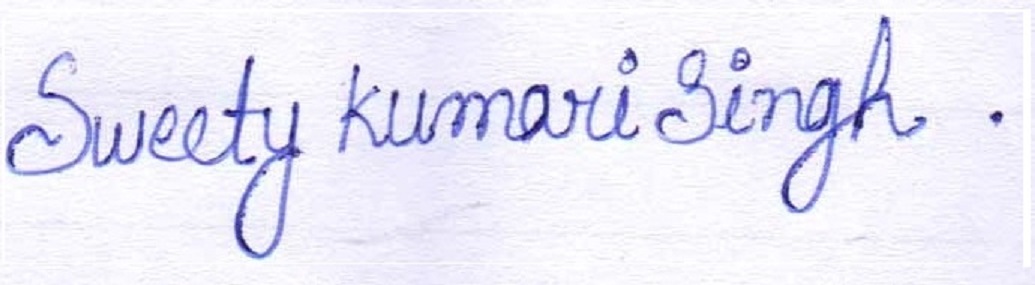 Sweety kumari Singh .